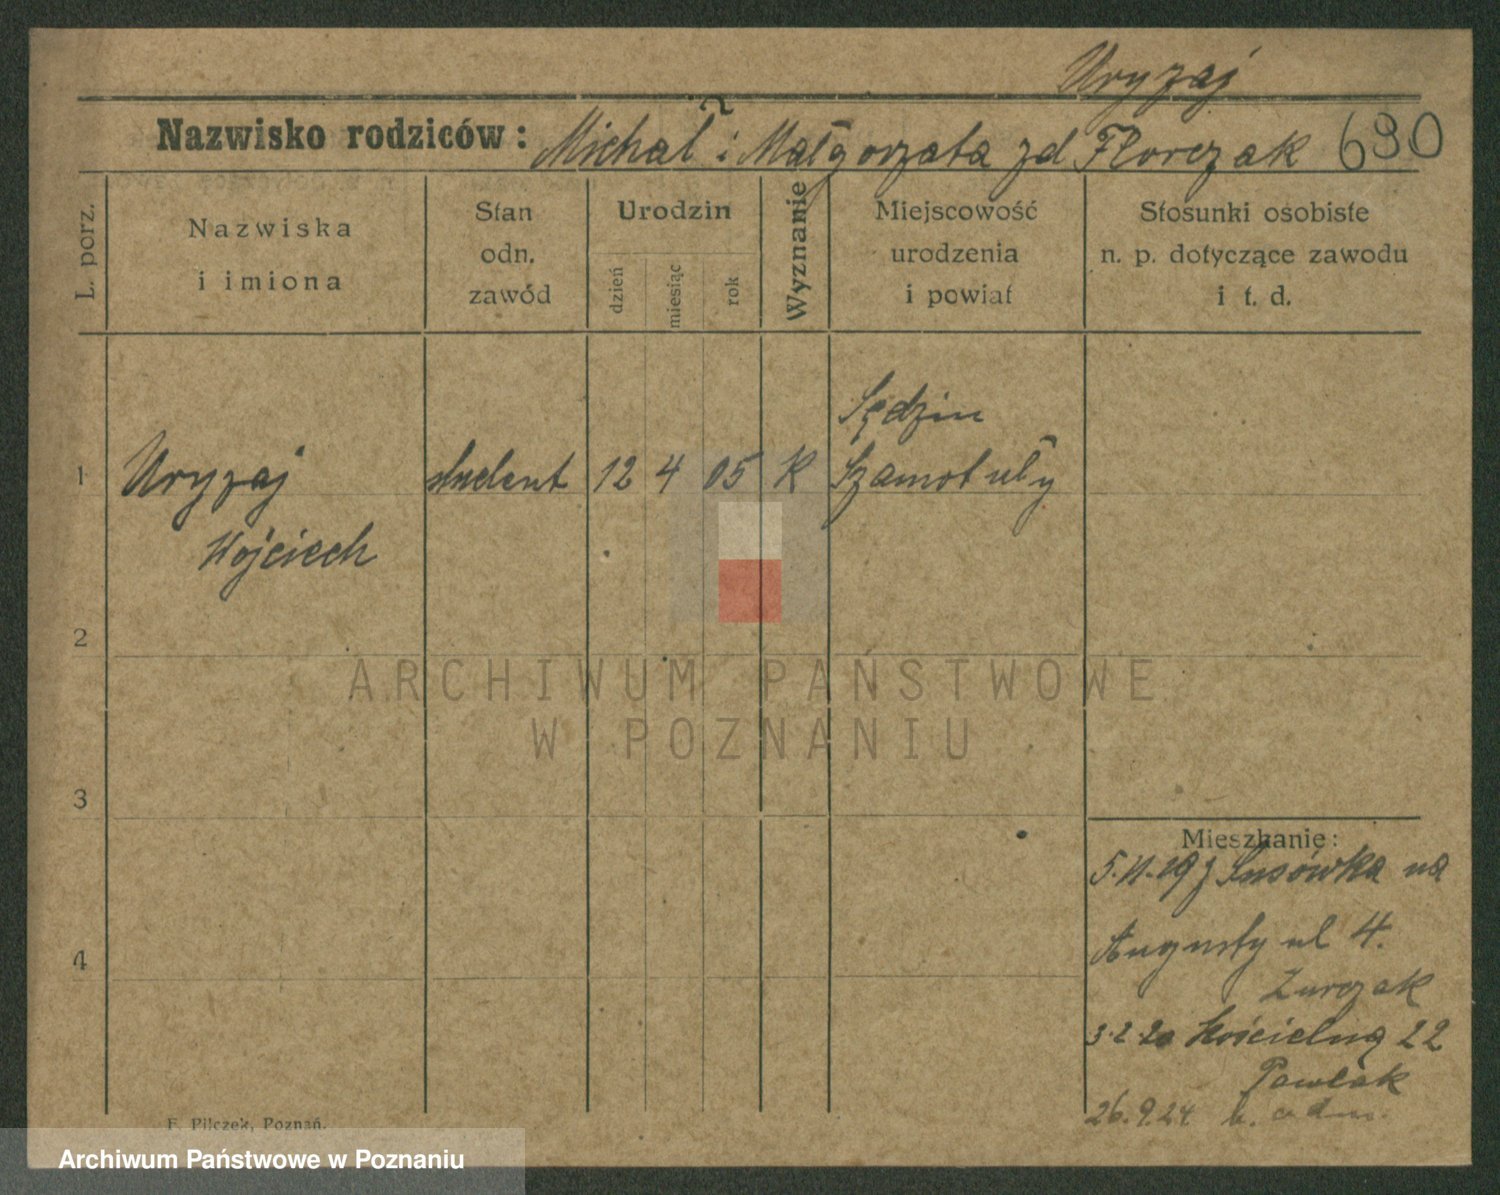 Uryzaj
Nazwisko rodziców: Michał i Małgorzata zd Florczak 690
L. porz.
Nazwiska
i imiona
Stan
odn.
zawód
Urodzin
dzień
miesiąc
rok
Wyznanie
Miejscowość
urodzenia
i powiat
Stosunki osobiste
n. p. dotyczące zawodu
i t. d.
Sędzin
1 Uryzaj student 12 4 05 K Szamotuły
Wojciech
2
ARCHIWUM PAŃSTWOWE
W POZNANIU
3
Mieszkanie:
5.11.19 z na
4
Augusty ul 4.
Zurczak
3.2.20 Kościelną 22
Pawlak
26.9.24
F. Pilczek, Poznań.
Archiwum Państwowe w Poznaniu